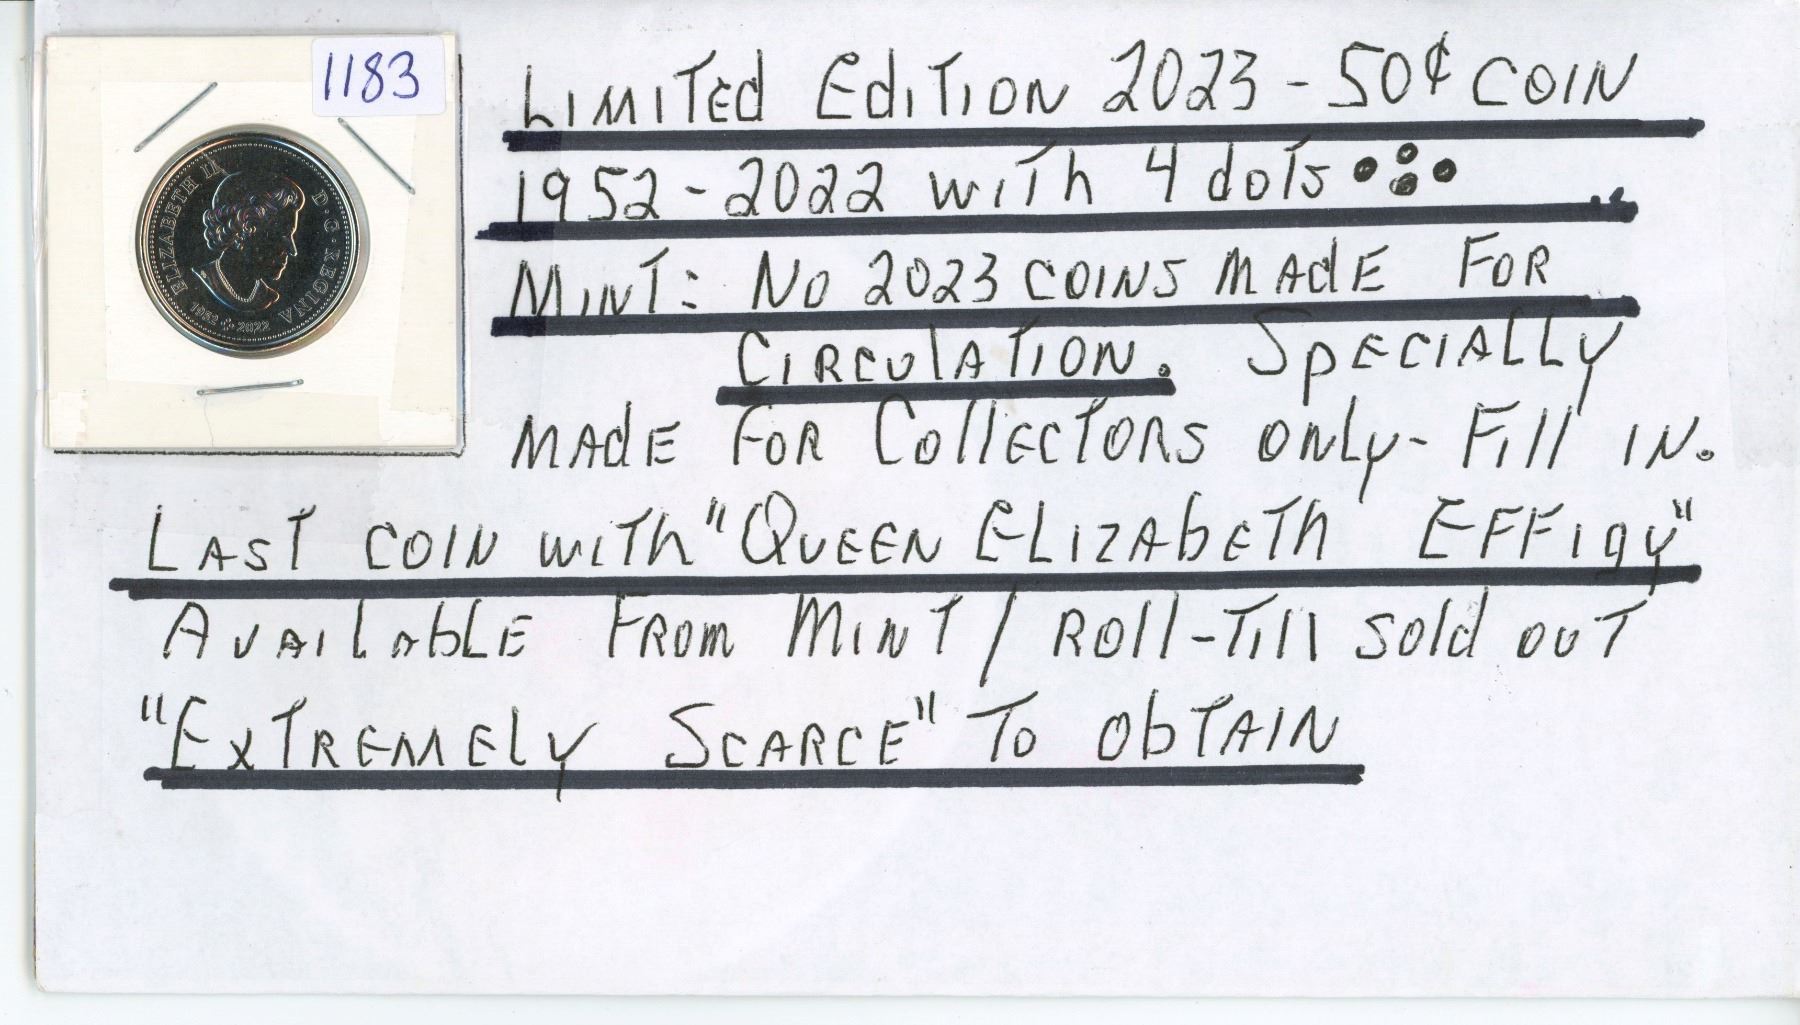 1183
ELIZABETH II D·G·REGINA
1952 2022
LIMITEd EdITION 2023 - 50¢ COIN
1952 - 2022 wITh 4 doTs
MINT: No 2023 COINS MAdE FOR
CIRCulATION. SpECIALLy
MAdE FOR CollECTORS ONLy - Fill IN.
LAST COIN wITh "QUEEN ELIZAbETh EFFIgy"
AVAIlAbLE FROM MINT / ROll-Till Sold OUT
"ExTREMEly SCARCE" To ObTAIN